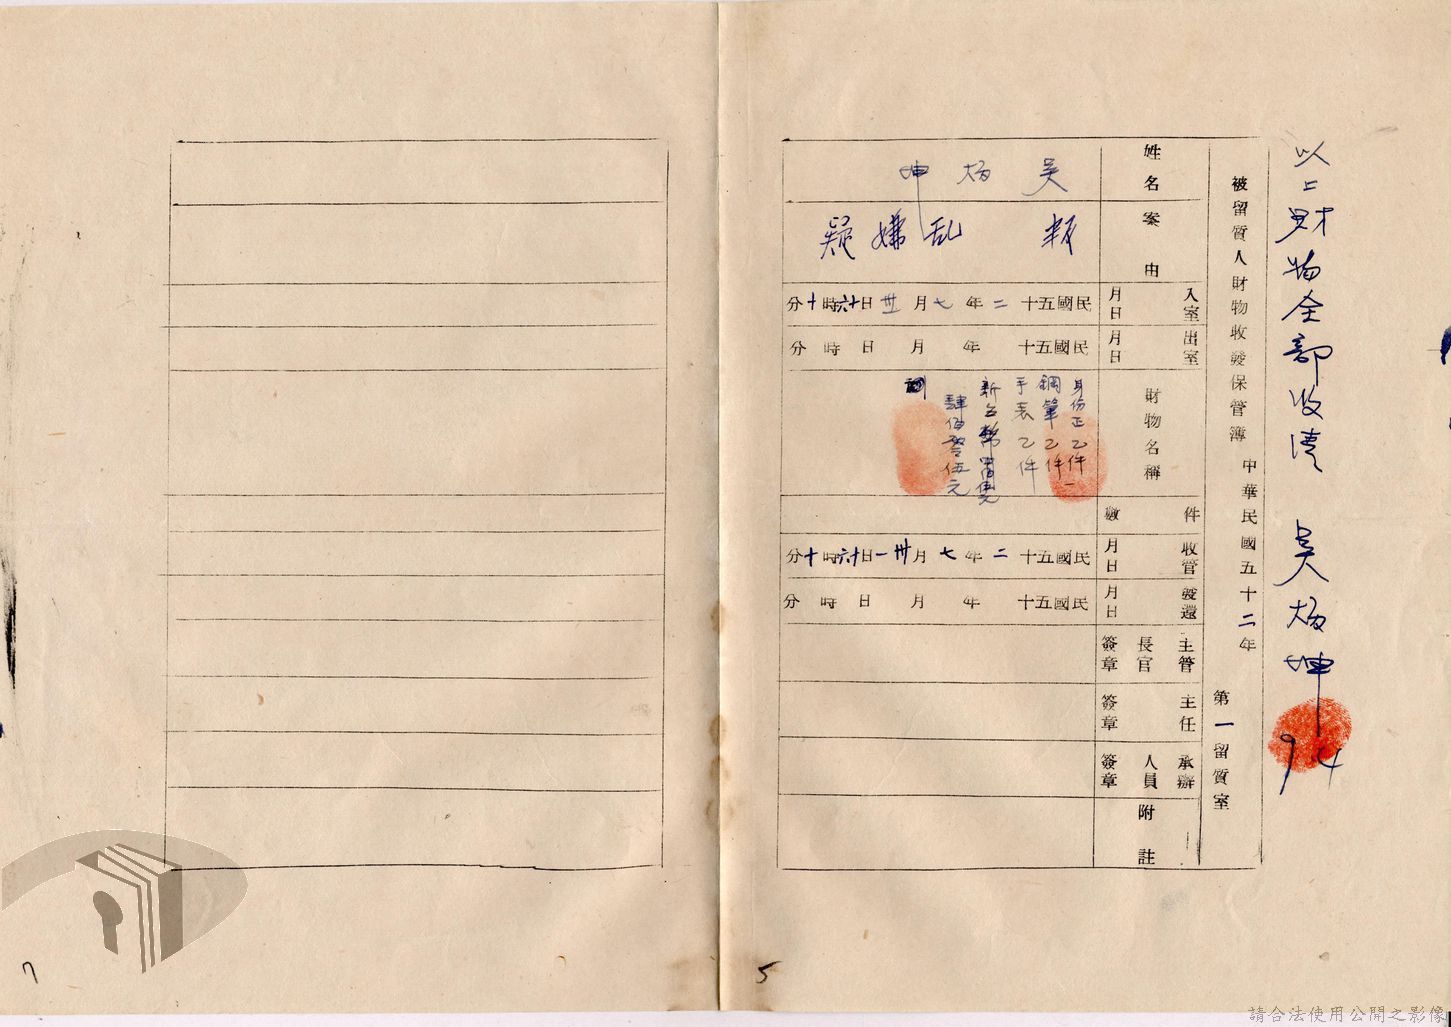 以上財物全部收清 吳炳坤 9/4
被留質人財物收發保管簿 中華民國五十二年
第一留質室
姓名 吳炳坤
案由 叛乱嫌疑
入室月日 民國五十二年七月卅一日十六時十分
出室月日 民國五十 年 月 日 時 分
財物名稱
身份正乙件
鋼筆乙件
手表乙件
新台幣
肆佰 伍元
件數
收管月日 民國五十二年七月卅一日十六時十分
發還月日 民國五十 年 月 日 時 分
主管長官簽章
主任簽章
承辦人員簽章
附註
5
7
請合法使用公開之影像